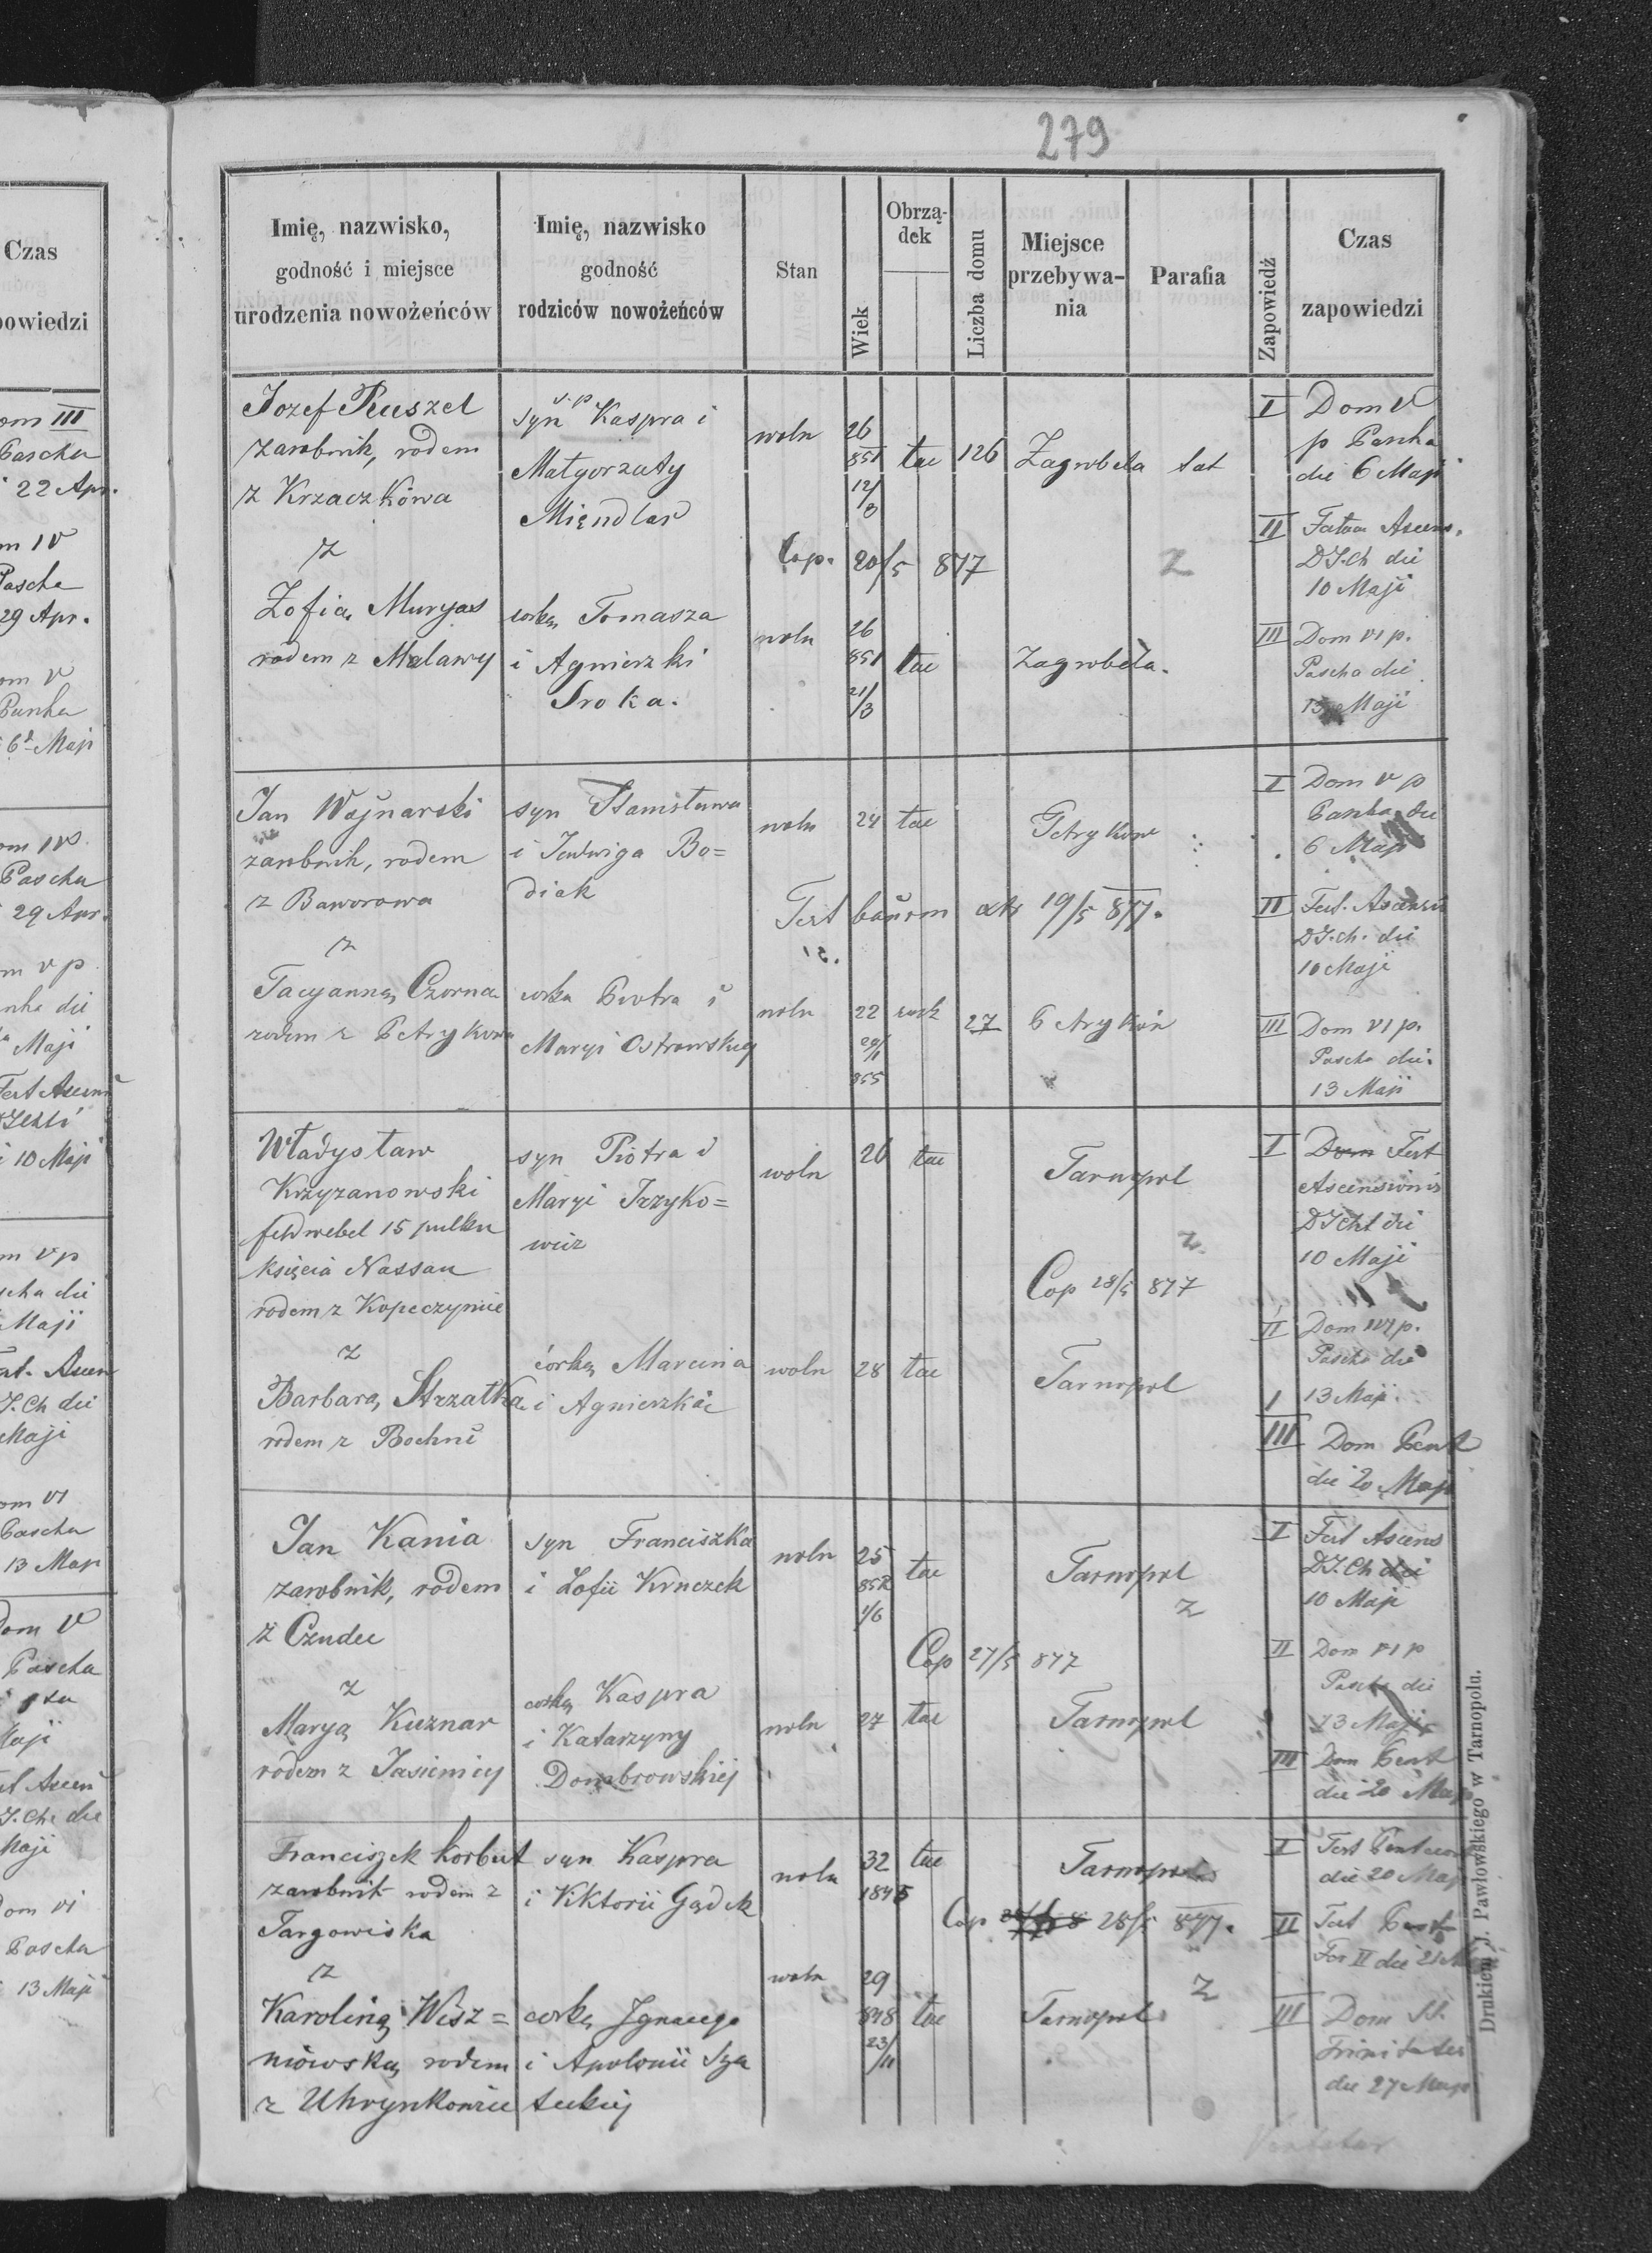 279
Imię, nazwisko,
godność i miejsce
urodzenia nowożeńców
Imię, nazwisko
godność
rodziców nowożeńców
Stan
Wiek
Obrzą-
dek
Liczba domu
Miejsce
przebywa-
nia
Parafia
Zapowiedź
Czas
zapowiedzi
Jozef Ruszel
zarobnik, rodem
z Krzaczkowa
z
Zofią Muryas
rodem z Malawy
syn ś. p. Kaspra i
Małgorzaty
Miendlar
corką Tomasza
i Agnieszki
Sroka.
woln 26 851 12/3 lac 126 Zagrobela lat
Cop. 20/5 877
Z
woln 26 851 21/3 lac Zagrobela.
I Dom V
p Pascha
die 6 Maji
II Ascens.
D.J.Ch die
10 Maji
III Dom VI p.
Pascha die
13 Maji
Jan Wojnarski
zarobnik, rodem
z Baworowa
z
Tacyanną Czorna
rodem z Petrykowa
syn Stanisława
i Jadwiga Bo=
diak
corka Piotra i
Maryi Ostrowskiej
woln 24 lac Petrykow
Test 19/5 877.
woln 22 29/1 855 27 Petryków
I Dom V p
Pascha die
6 Maji
II Fest. Ascensis
D.J.Ch. die
10 Maji
III Dom VI p.
Pascha die
13 Maji
Władysław
Krzyzanowski
feldwebel 15 pulku
księcia Nassau
rodem z Kopeczynie
z
Barbarą Strzałka
rodem z Bochni
syn Piotra i
Maryi Irzyko=
wicz
córką Marcina
i Agnieszkie
woln 26 lac Tarnopol
z
Cop 28/5 877
woln 28 lac Tarnopol
I Dom Fest
Ascensionis
D.J.Cht die
10 Maji
II Dom VI p.
Pascha die
13 Maji
III Dom Pent
die 20 Maji
Jan Kania
zarobnik, rodem
z Czudec
z
Maryą Kuznar
rodem z Jasienicy
syn Franciszka
i Zofii Kruczek
corką Kaspra
i Katarzyny
Dombrowskiej
woln 25 852 1/6 lac Tarnopol
z
Cop 27/5 877
woln 27 lac Tarnopol
I Fest Ascens
D.J.Ch die
10 Maji
II Dom VI p
Pascha die
13 Maji
III Dom Pent
die 20 Maji
Franciszek Korbut
zarobnik rodem z
Targowiska
z
Karoliną Wisz=
niowską rodem
z Uhrynkowiec
syn Kaspra
i Wiktorii Gądek
corką Ignacego
i Apolonii Sza
teckiej
woln 32 1845 lac Tarnopol
Cop 28/5 877.
z
woln 29 848 23/11 lac Tarnopol
I Fest Pentecost
die 20 Maji
II Fest Pent
Fer II die 21 M
III Dom SS.
Trinitatis
die 27 Maji
Drukiem J. Pawłowskiego w Tarnopolu.
Czas
powiedzi
om III
Pascha
22 Apr.
m IV
Pascha
29 Apr.
om V
Pascha
6 Maji
om IV
Pascha
29 Apr.
m V p
die
Maji
Fest Ascens
10 Maji
m V p
die
Maji
Ascen
J.Ch die
Maji
om VI
Pascha
13 Maji
Dom V
Pascha
Maji
Ascen
J.Ch. die
Maji
Dom VI
Pascha
13 Maji